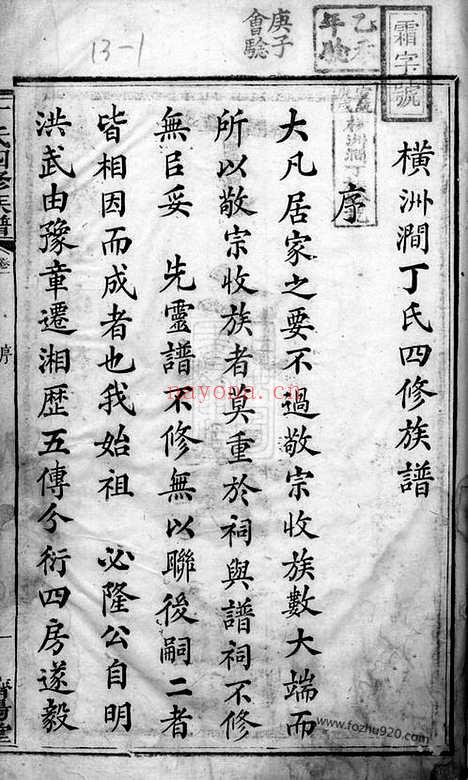 橫洲澗丁氏四修族譜
序
大凡居家之要不過敬宗收族數大端而
所以敬宗收族者莫重於祠與譜祠不修
無㠯妥　先靈譜不修無以聯後嗣二者
皆相因而成者也我始祖　必隆公自明
洪武由豫章遷湘歷五傳今衍四房遂毅
霜字號
乙亥年驗
庚子會驗
13-1
氏四修族譜
卷
序
一
濟陽堂
nayona.cn
https://www.fozhu920.com